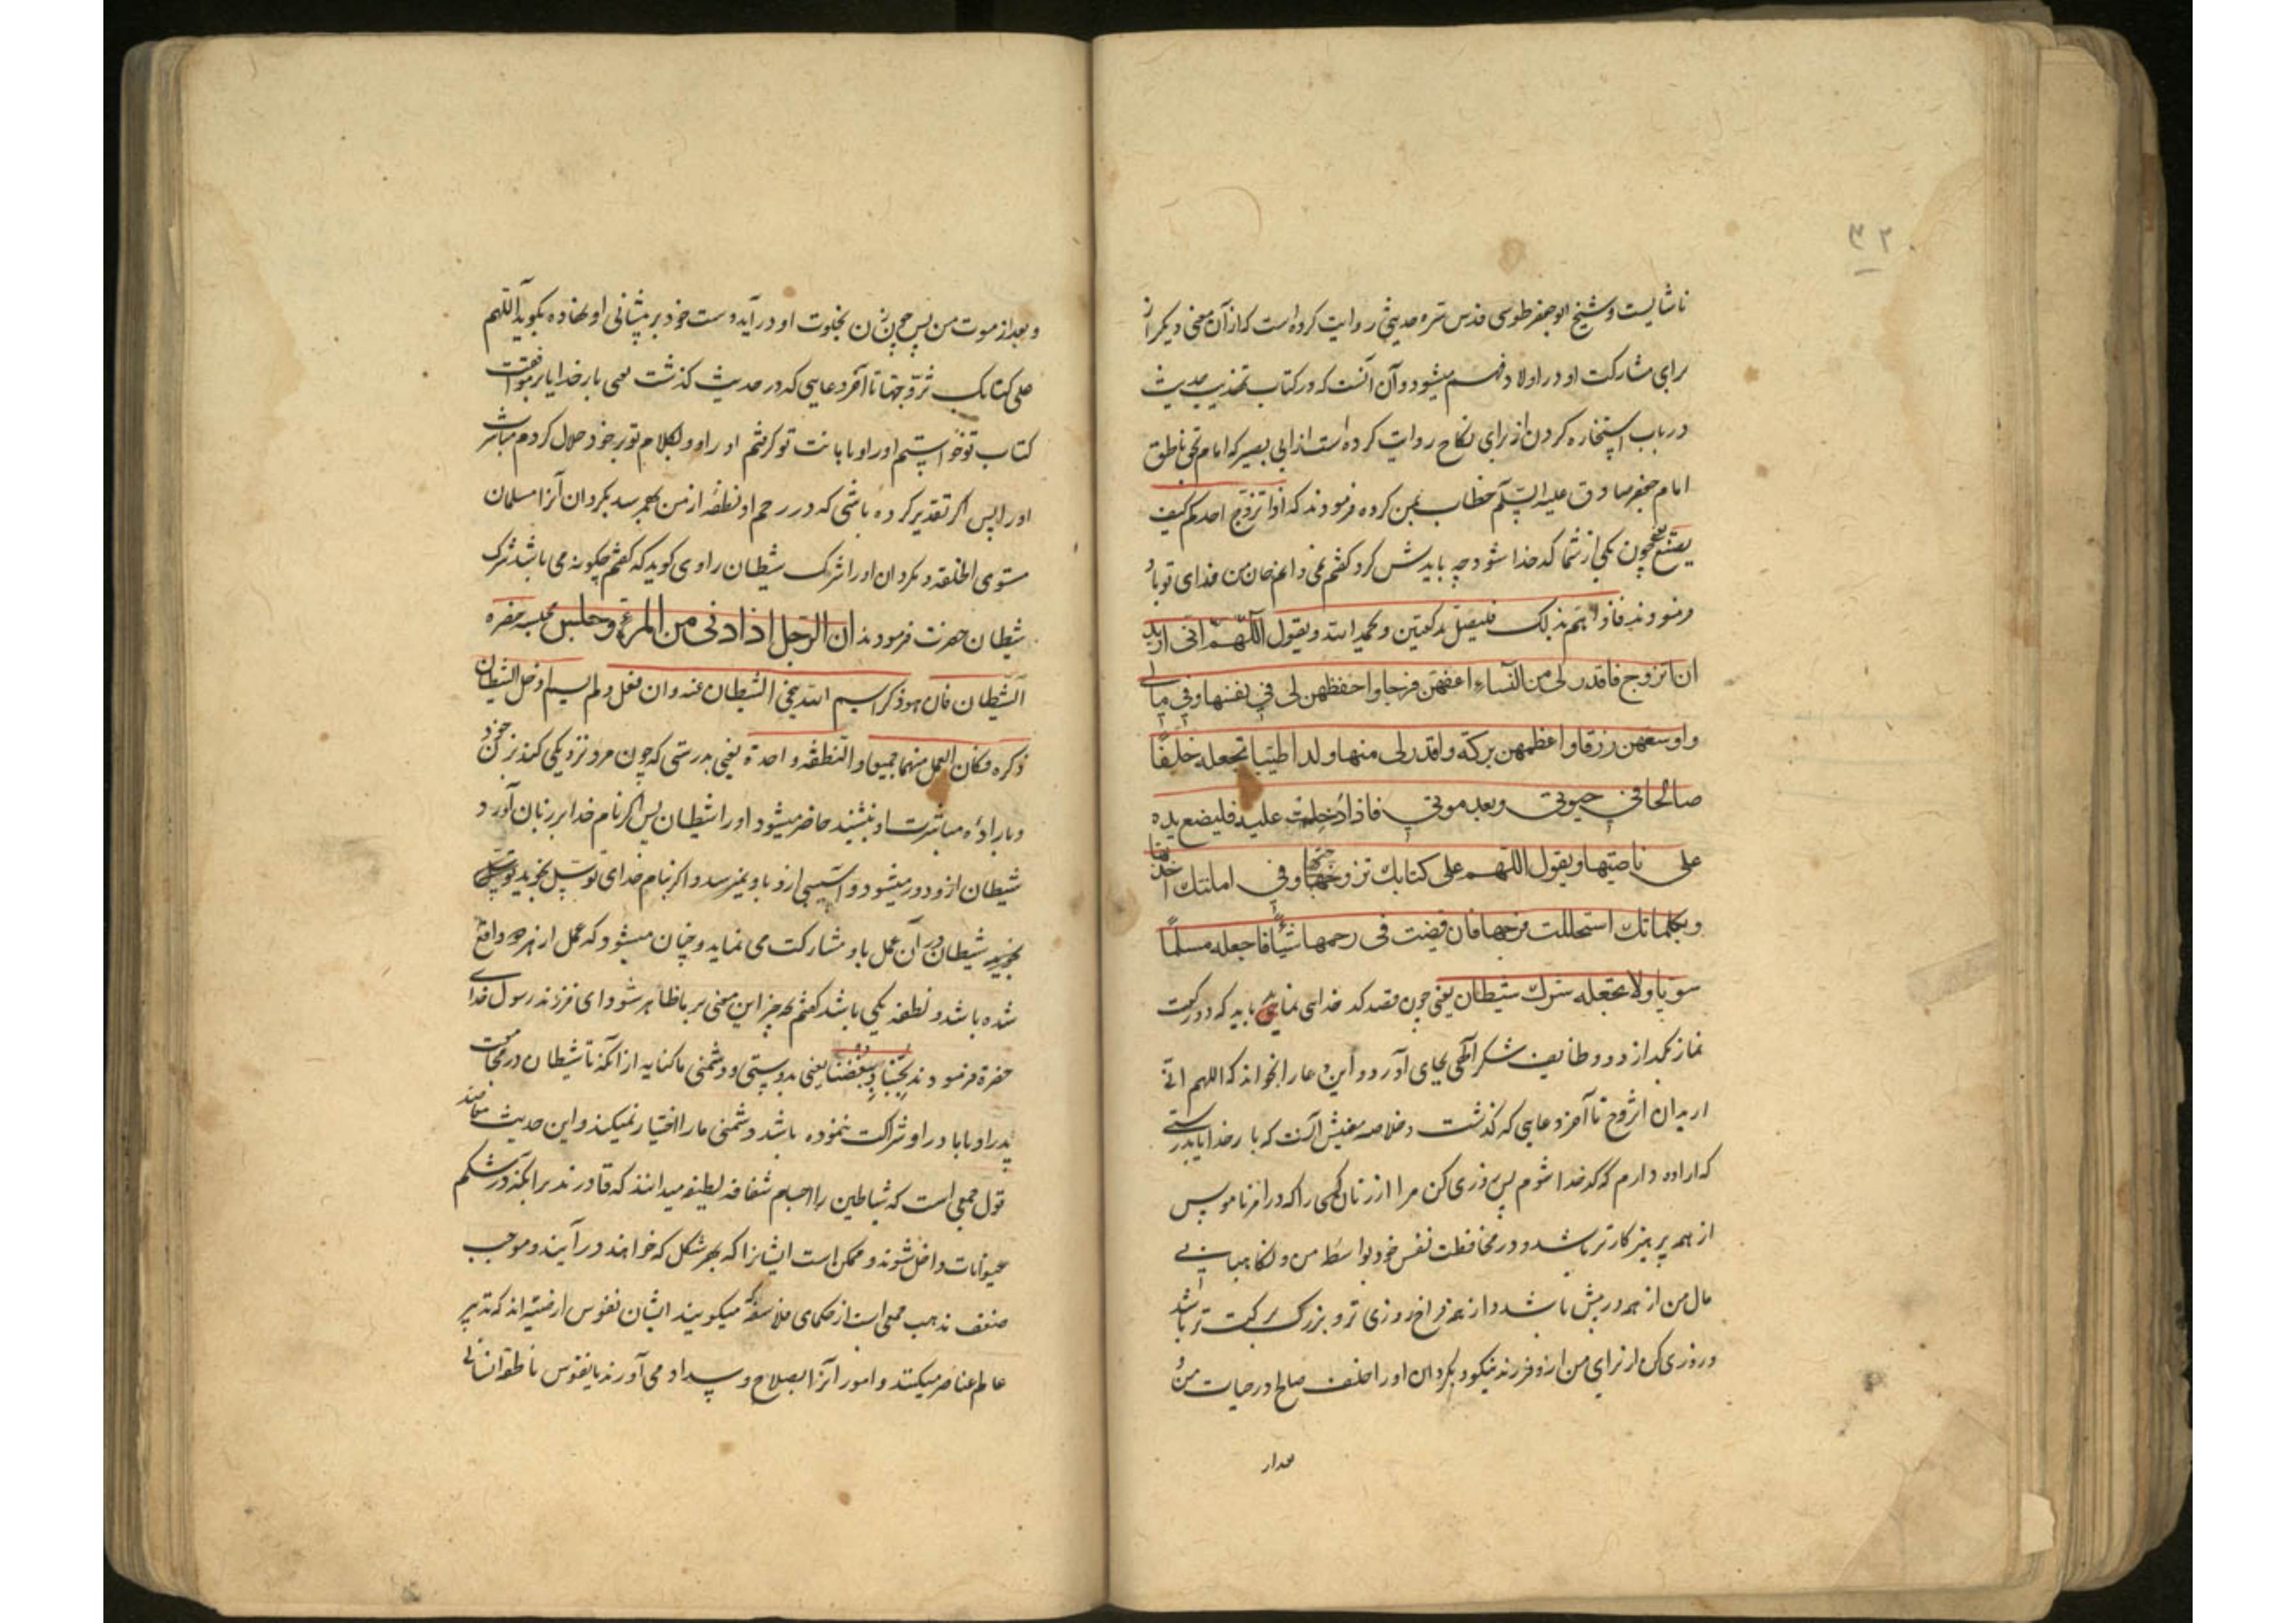 ۳۲
ناشایست و شیخ ابوجعفر طوسی قدس سره حدیثی روایت کرده است که از آن معنی دیکر از
برای مشارکت او در اولاد فهم میشود و آن آنست که در کتاب تهذیب حدیث
در باب استخاره کردن از برای نکاح روایت کرده است از ابی بصیر که امام بحق ناطق
امام جعفر صادق علیه السلام خطاب بمن کرده فرمودند که اذا تزوج احدکم کیف
یصنع یعنی چون یکی از شما کدخدا شود چه بایدش کرد کفتم نمی دانم جان من فدای تو باد
فرمودند فاذا هم بذلک فلیصل رکعتین و یحمد الله و یقول اللهم انی ارید
ان اتزوج فاقدر لی من النساء اعفهن فرجا و احفظهن لی فی نفسها و فی مالی
و اوسعهن رزقا و اعظمهن برکة و اقدر لی منها ولدا طیبا تجعله خلیفا
صالحا فی حیوتی و بعد موتی فاذا دخلت علیه فلیضع یده
علی ناصیتها و یقول اللهم علی کتابک تزوجتها و فی امانتک اخذتها
و بکلماتک استحللت فرجها فان قضیت فی رحمها شیئا فاجعله مسلما
سویا و لا تجعله شرک شیطان یعنی چون قصد کدخدایی نماید باید که دو رکعت
نماز بگذارد و وظایف شکر الهی بجای آورد و این دعا را بخواند که اللهم انی
ارید ان اتزوج تا آخر دعایی که کذشت و خلاصه معنیش آنست که بار خدایا بدرستی
که اراده دارم که کدخدا شوم پس روزی کن مرا از زنان کسی را که در امر ناموس
از همه پرهیزکارتر باشد و در محافظت نفس خود بواسطه من و نکاهبانی
مال من از همه در پیش باشد و از همه فراخ روزی تر و بزرک برکت تر باشد
و روزی کن از برای من ازو فرزند نیکو و بکردان او را خلف صالح در حیات من
و بعد از موت من پس چون زن بخلوت او درآید دست خود بر پیشانی او نهاده بکوید اللهم
علی کتابک تزوجتها تا آخر دعایی که در حدیث کذشت یعنی بار خدایا بر موافقت
کتاب تو خواستم او را و با امانت تو کرفتم او را و بکلام تو بر خود حلال کردم مباشرت
او را پس اکر تقدیر کرده باشی که در رحم او نطفه از من بهم رسد بکردان آنرا مسلمان
مستوی الخلقه و مکردان او را شرک شیطان راوی کوید که کفتم چکونه می باشد شرک
شیطان حضرت فرمودند ان الرجل اذا دنی من المرءة و جلس مجلسه حضره
الشیطان فان هو ذکر اسم الله تنحی الشیطان عنه و ان فعل و لم یسم ادخل الشیطان
ذکره فکان العمل منهما جمیعا و النطفة واحدة یعنی بدرستی که چون مرد نزدیکی کند بزن خود
و باراده مباشرت او بنشیند حاضر میشود او را شیطان پس اکر نام خدا بر زبان آورد
شیطان ازو دور میشود و آسیبی ازو باو نمیرسد و اکر بنام خدای توسل نجوید
شیطان در آن عمل باو مشارکت می نماید و چنان میشود که عمل از هر دو واقع
شده باشد و نطفه یکی باشد کفتم بچه چیز این معنی بر ما ظاهر شود ای فرزند رسول خدای
حضرة فرمودند بحبنا و بغضنا یعنی بدوستی و دشمنی ما کنایه از آنکه تا شیطان در مجامعت
پدر او با مادر او شراکت ننموده باشد دشمنی ما را اختیار نمیکند و این حدیث
قول جمعی است که شیاطین را اجسام شفافه لطیفه میدانند که قادرند بر آنکه در شکم
حیوانات داخل شوند و ممکن است ایشانرا که بهر شکل که خواهند درآیند و موجب
ضعف مذهب جمعی است از حکمای فلاسفه که میکویند ایشان نفوس ارضیه اند که تدبیر
عالم عناصر میکنند و امور آنرا بصلاح و سداد می آورند یا نفوس ناطقه انسانی